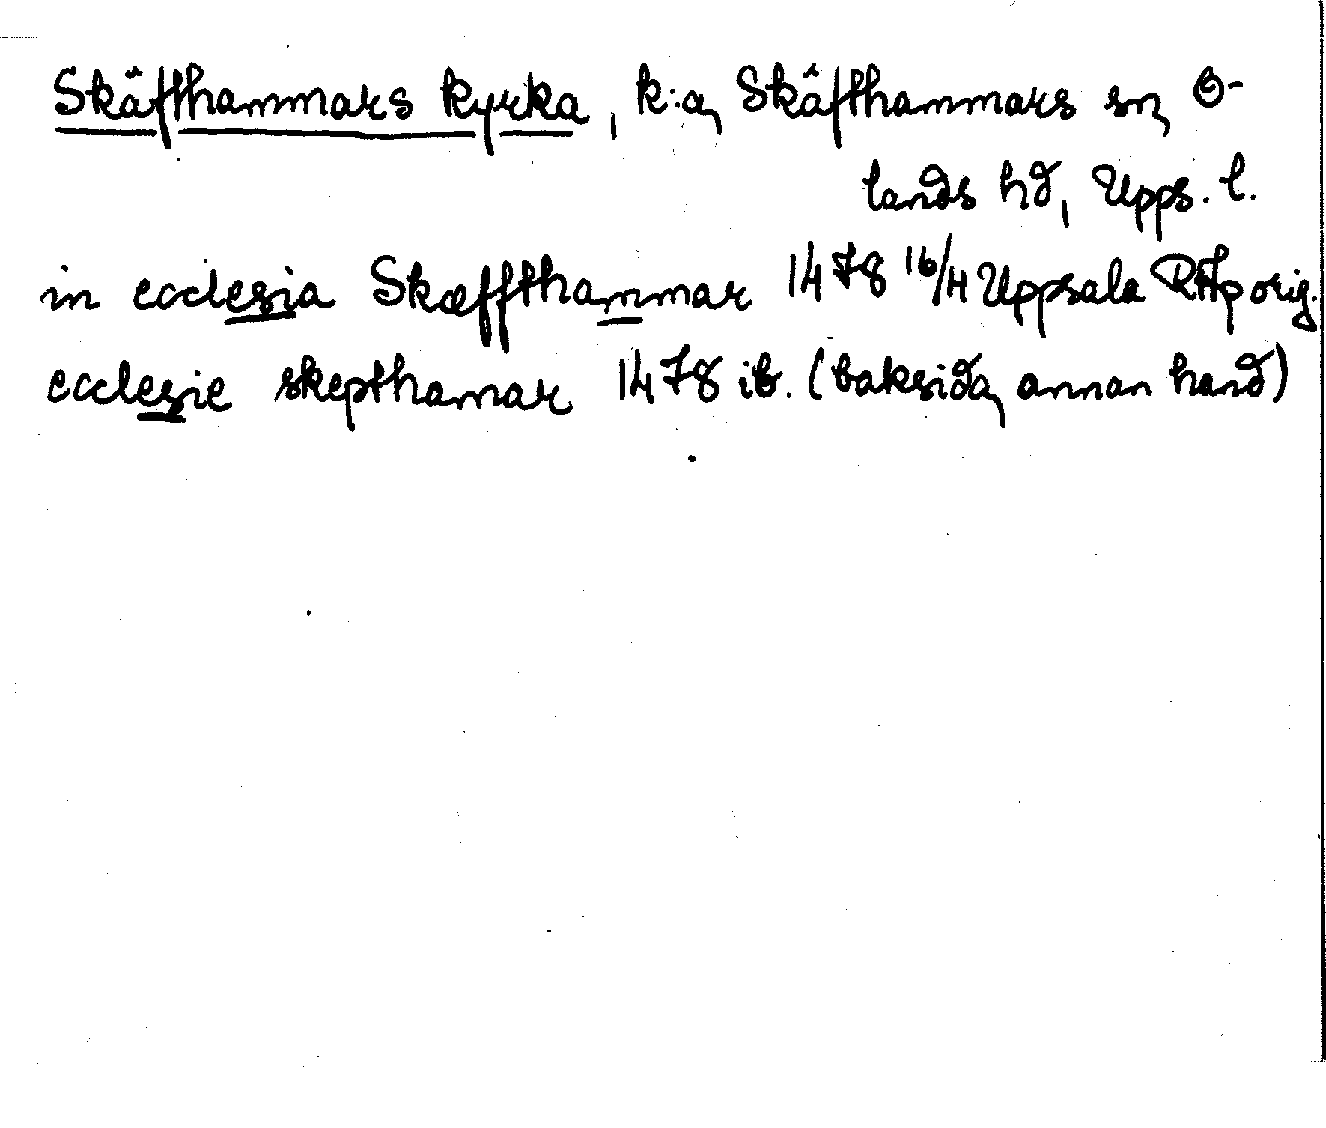 Skäfthammars kyrka, k:a, Skäfthammars sn, O-
lands hd, Upps. l.
in ecclesia Skæffthammar 1478 16/4 Uppsala RAp orig.
ecclesie skepthamar 1478 ib. (baksida, annan hand)